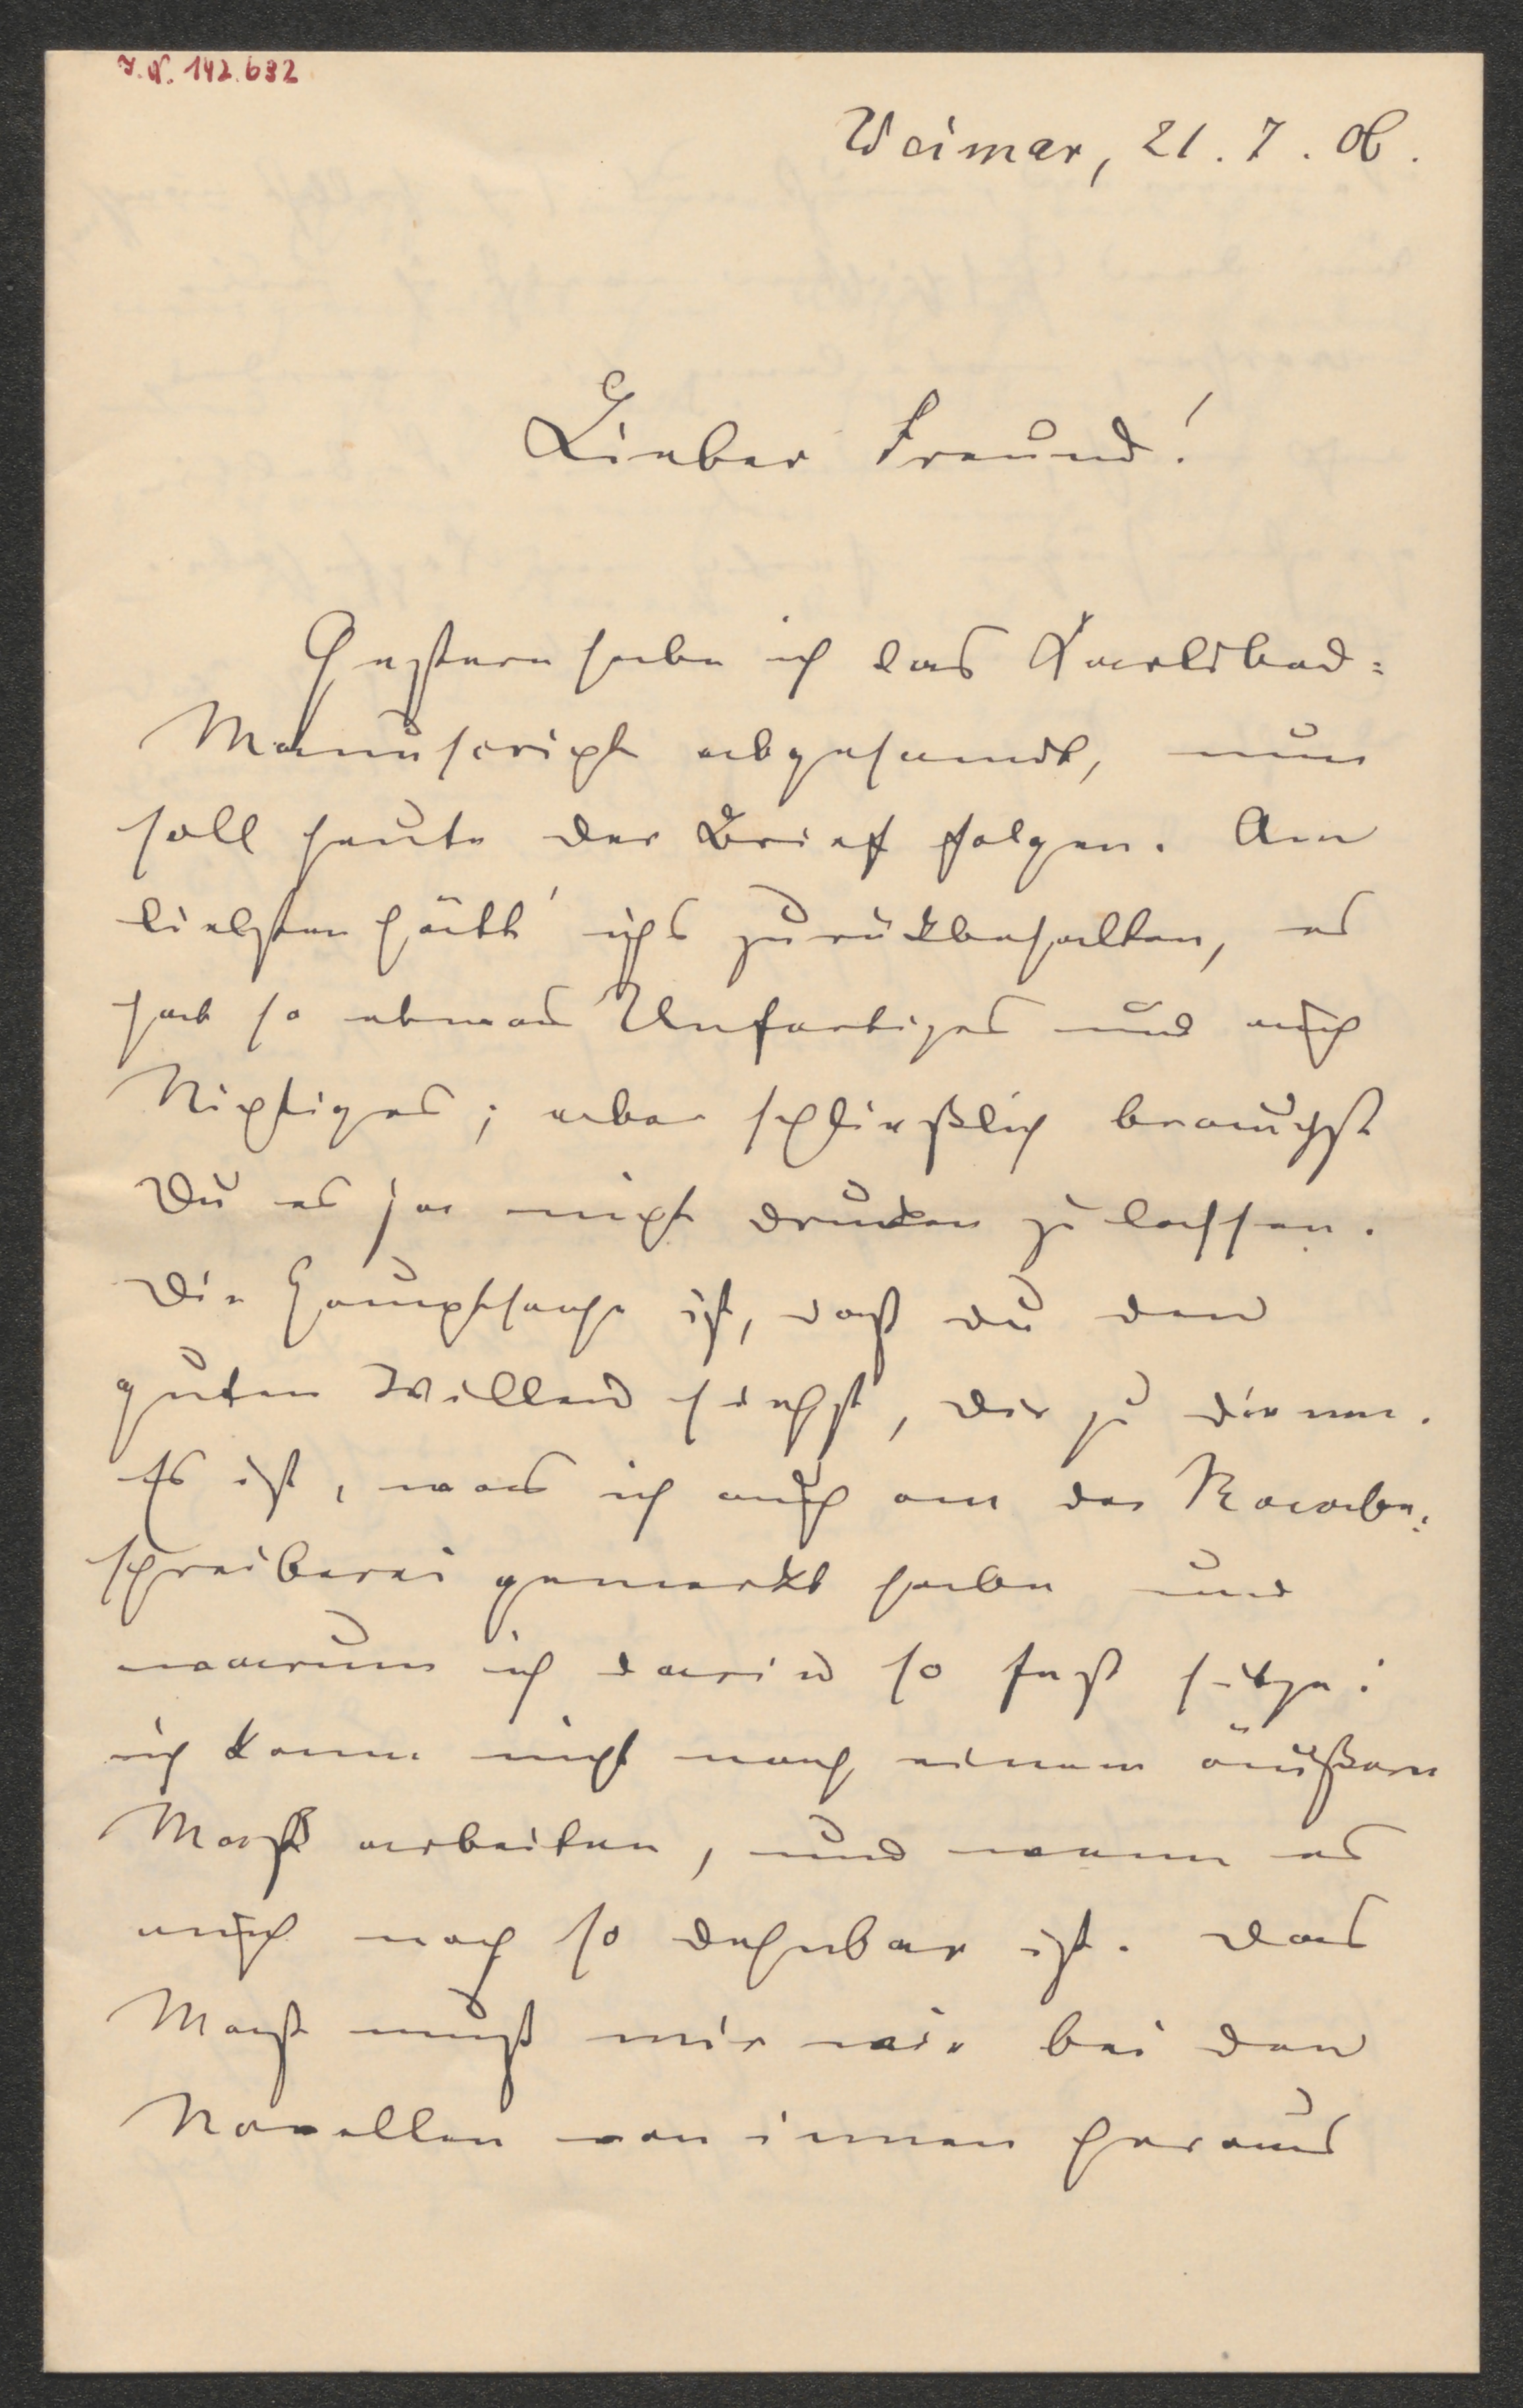 I.N. 142.682
Weimar, 21. 7. 06.
Lieber Freund!
Gestern habe ich das Karlsbad-
Manuscript abgesandt, nun
soll heute der Brief folgen. Am
liebsten hätt' ichs zurückbehalten, es
hat so etwas Unfertiges und auch
Nichtiges; aber schließlich brauchst
Du es ja nicht drucken zu lassen.
Die Hauptsache ist, daß du den
guten Willen siehst, dir zu dienen.
Es ist, was ich auch an der
schreiberei gemerkt habe und
warum ich darin so fest sitze:
ich kann nicht nach einem äußern
Maß arbeiten, und wenn es
auch noch so dehnbar ist. Das
Maß muß mir wie bei den
Novellen von innen heraus